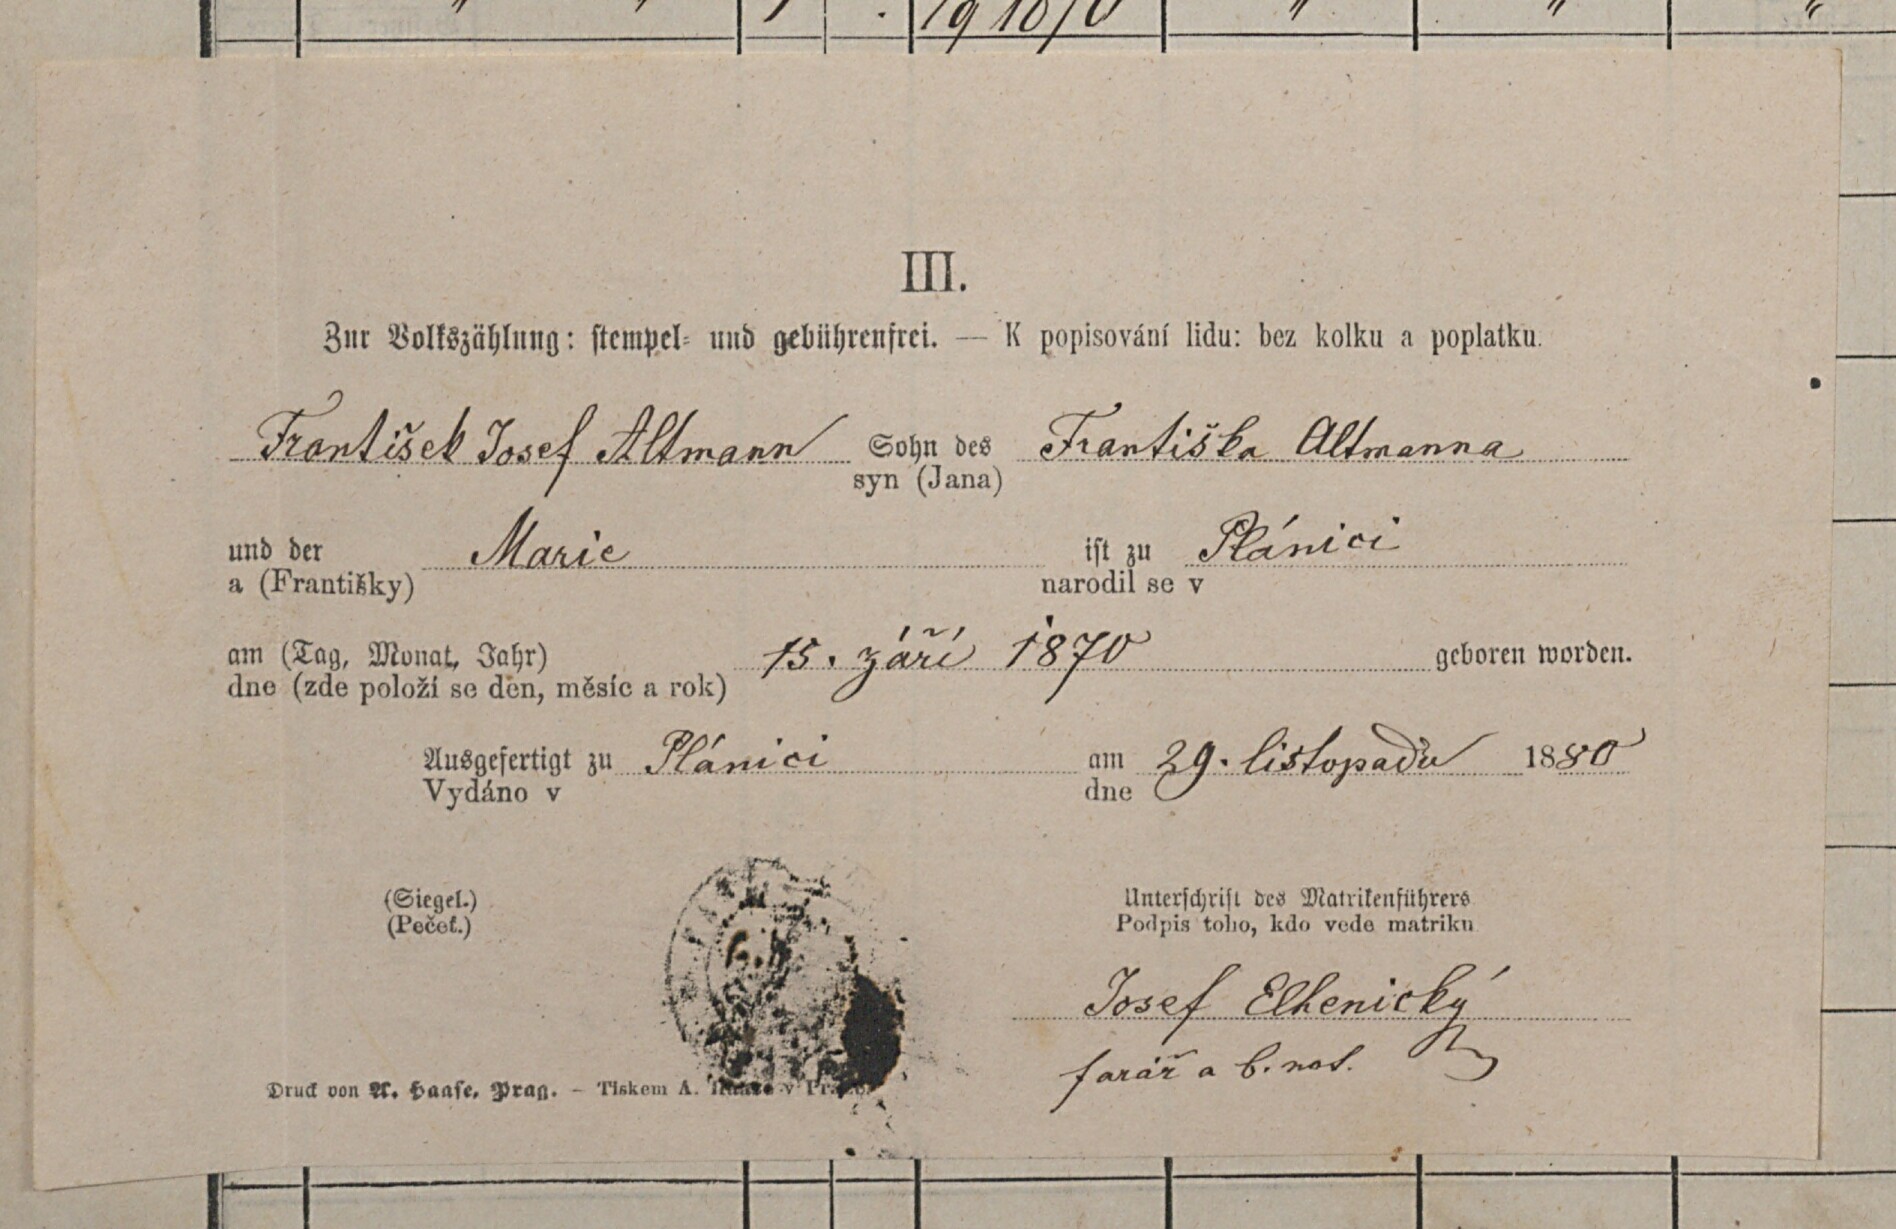 19 1870
III.
Zur Volkszählung: stempel- und gebührenfrei. — K popisování lidu: bez kolku a poplatku.
František Josef Altmann Sohn des Františka Altmanna
syn (Jana)
und der Marie ist zu Plánici
a (Františky) narodil se v
am (Tag, Monat, Jahr) 15. září 1870 geboren worden.
dne (zde položí se den, měsíc a rok)
Ausgefertigt zu Plánici am 29. listopadu 1880
Vydáno v dne
(Siegel.) Unterschrift des Matrikenführers
(Pečeť.) Podpis toho, kdo vede matriku
Josef Elhenický
farář a b. not.
Druck von A. Haase, Prag. – Tiskem A. Haase v Praze.